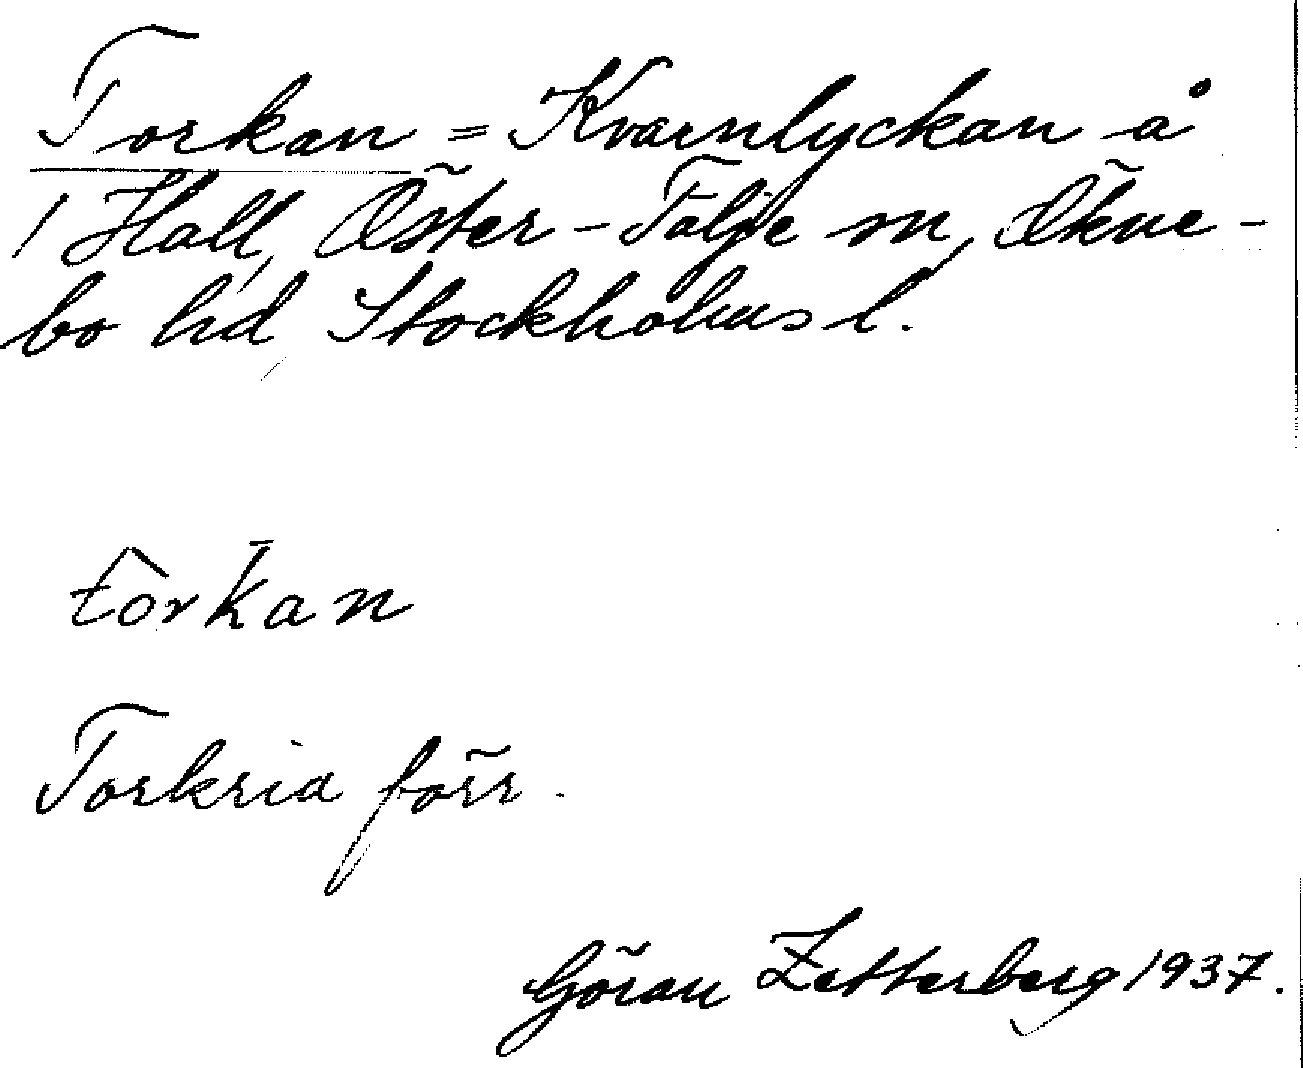 Torkan = Kvarnlyckan å
1 Hall, Öster-Tälje sn, Ökne-
bo hd, Stockholms l.
tòrk̄an
Torkria förr.
Göran Zetterberg 1937.